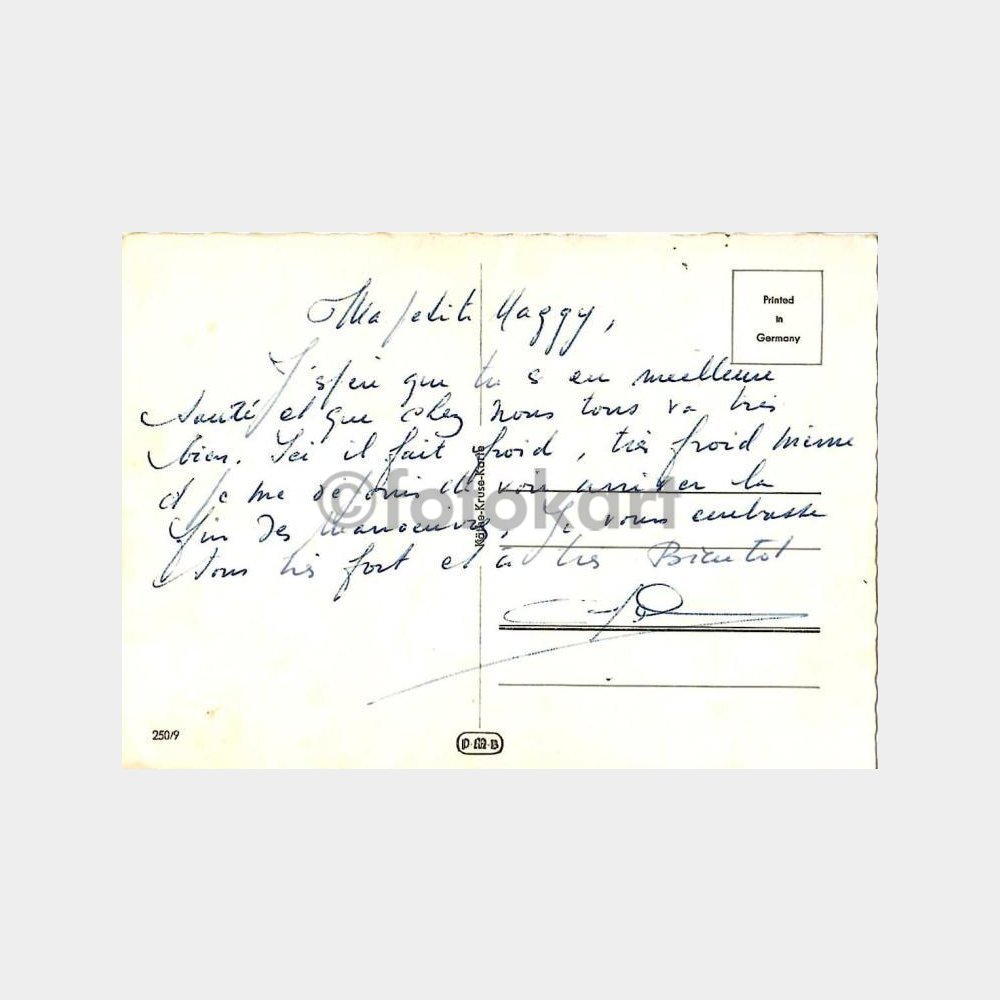 Ma petite Maggy,
J'espère que tu es en meilleure
santé et que chez nous tous va très
bien. Ici il fait froid, très froid même
et je me réjouis de voir arriver la
fin des manoeuvres, Je vous embrasse
tous très fort et à très Bientôt
Printed
in
Germany
Käthe-Kruse-Karte
©fotokart
250/9
P·M·B